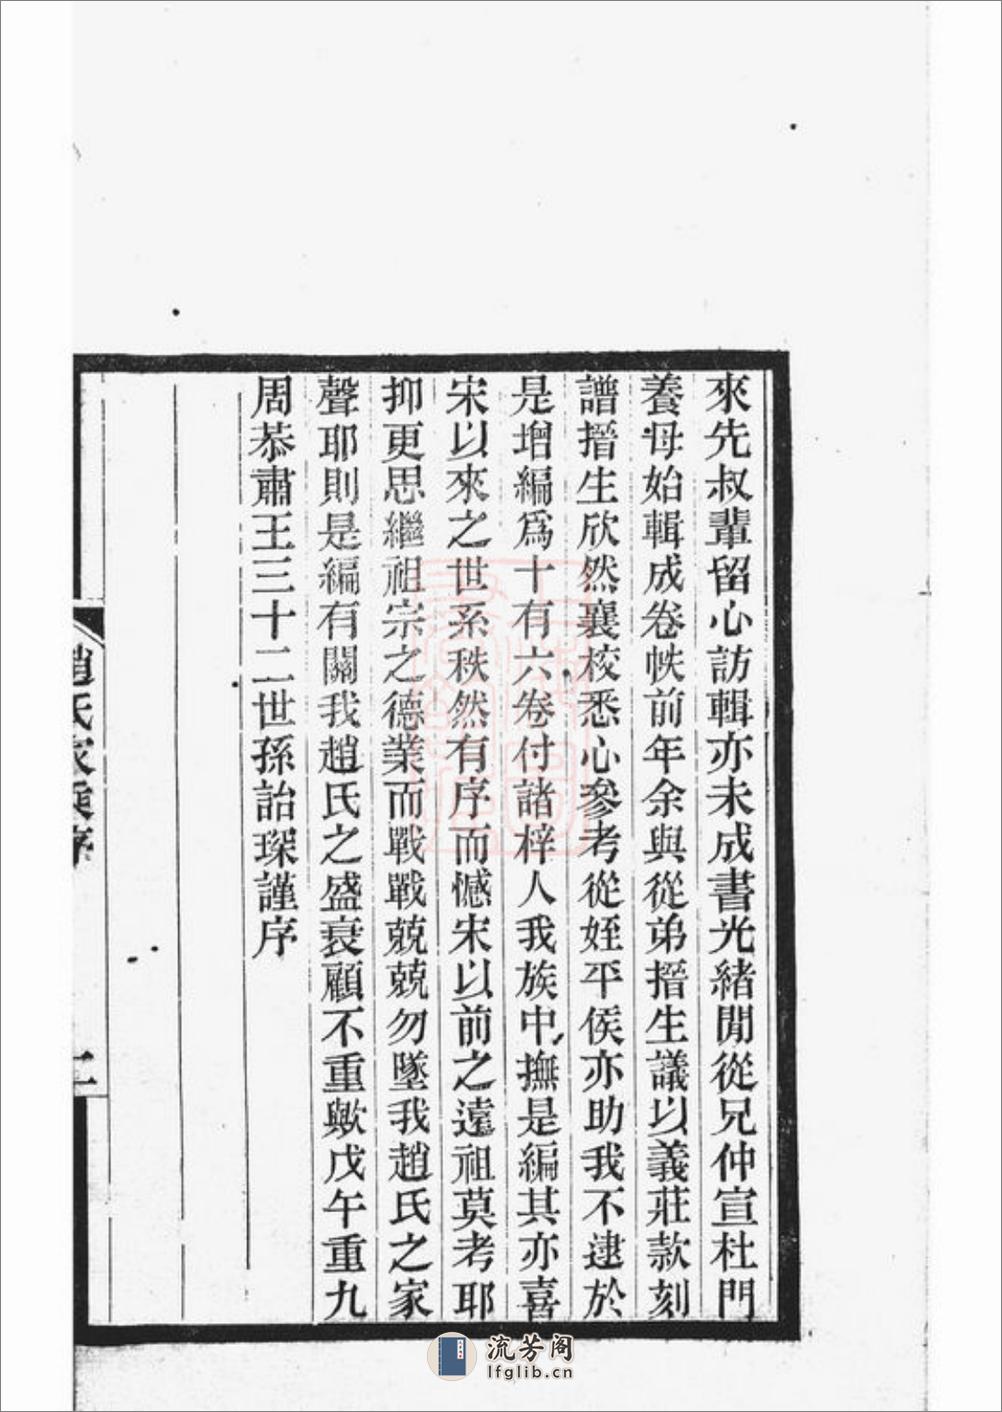 來先叔輩留心訪輯亦未成書光緒閒從兄仲宣杜門
養母始輯成卷帙前年余與從弟搢生議以義莊款刻
譜搢生欣然襄校悉心參考從姪平侯亦助我不逮於
是增編爲十有六卷付諸梓人我族中撫是編其亦喜
宋以來之世系秩然有序而憾宋以前之遠祖莫考耶
抑更思繼祖宗之德業而戰戰兢兢勿墜我趙氏之家
聲耶則是編有關我趙氏之盛衰顧不重歟戊午重九
周恭肅王三十二世孫詒琛謹序
趙氏家乘序
二
流芳阁
lfglib.cn